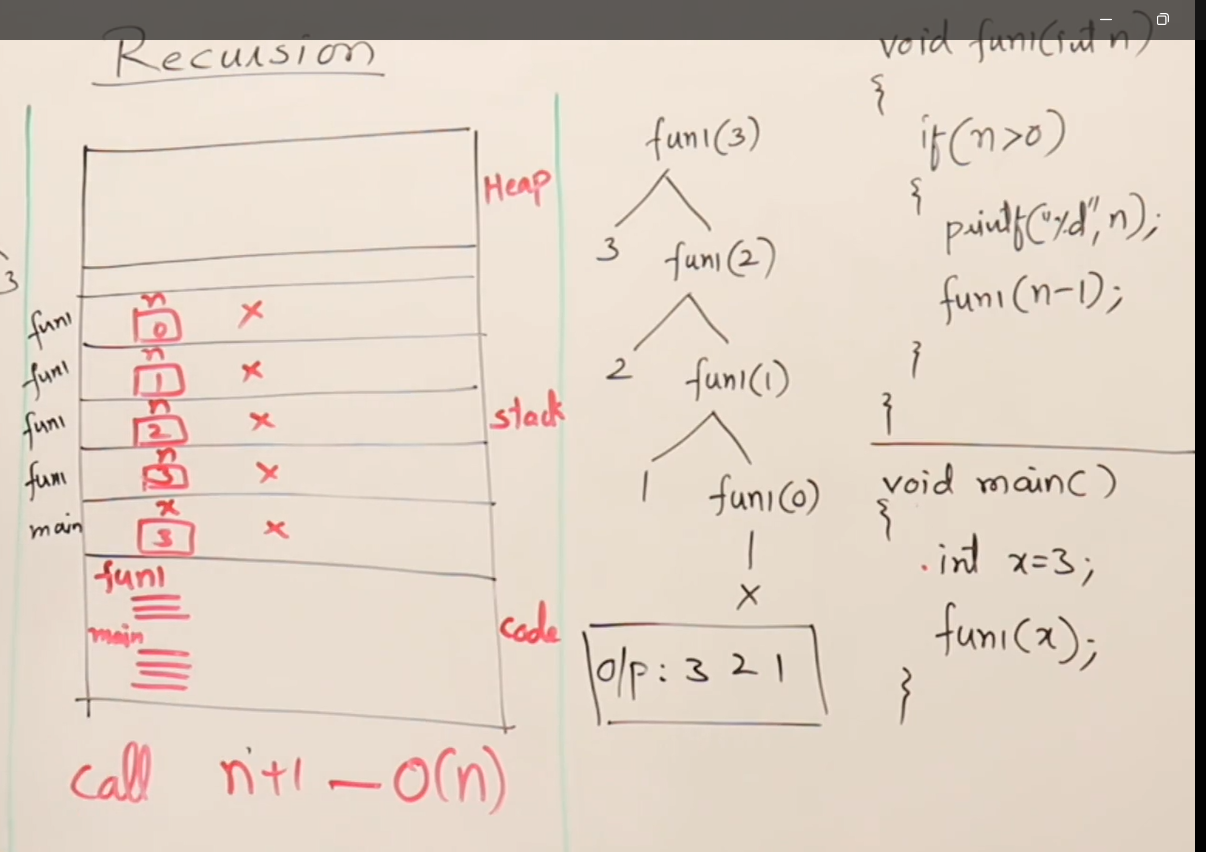 Recursion
3
Heap
fun1 n 0 ×
fun1 n 1 ×
fun1 n 2 ×
fun1 n 3 ×
stack
main x 3 ×
fun1
main
code
call n+1 — O(n)
fun1(3)
3 fun1(2)
2 fun1(1)
1 fun1(0)
×
o/p: 3 2 1
void fun1(int n)
{
if(n>0)
{
printf("%d", n);
fun1(n-1);
}
}
void main()
{
int x=3;
fun1(x);
}